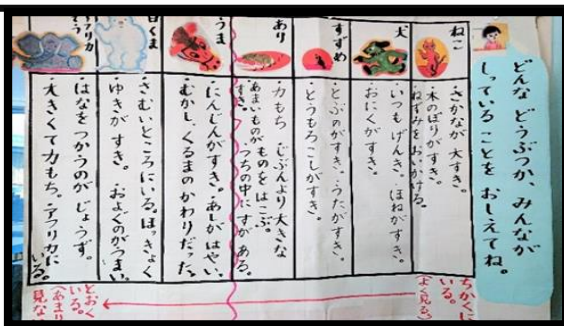 どんな どうぶつか、みんなが
しっていることを おしえてね。
ねこ
・さかなが 大すき。
・木のぼりが すき。
ねずみを おいかける。
犬
・いつも げんき。・ほねが すき。
・おにくが すき。
すずめ
・とぶのが すき。・うたが すき。
・とうもろこしが すき。
あり
・力もち じぶんより 大きな
ものを はこぶ。
・あまいものが すき。
・つちの中に すが ある。
うま
・にんじんが すき。・あしが はやい。
・むかし、くるまの かわりだった。
白くま
・さむいところに いる。ほっきょく
・ゆきが すき。・およぐのが うまい
アフリカぞう
・はなを つかうのが じょうず。
・大きくて 力もち。・アフリカに
いる。
ちかくに
いる。
(よく見る)
とおくに
いる。
(あまり
見ない